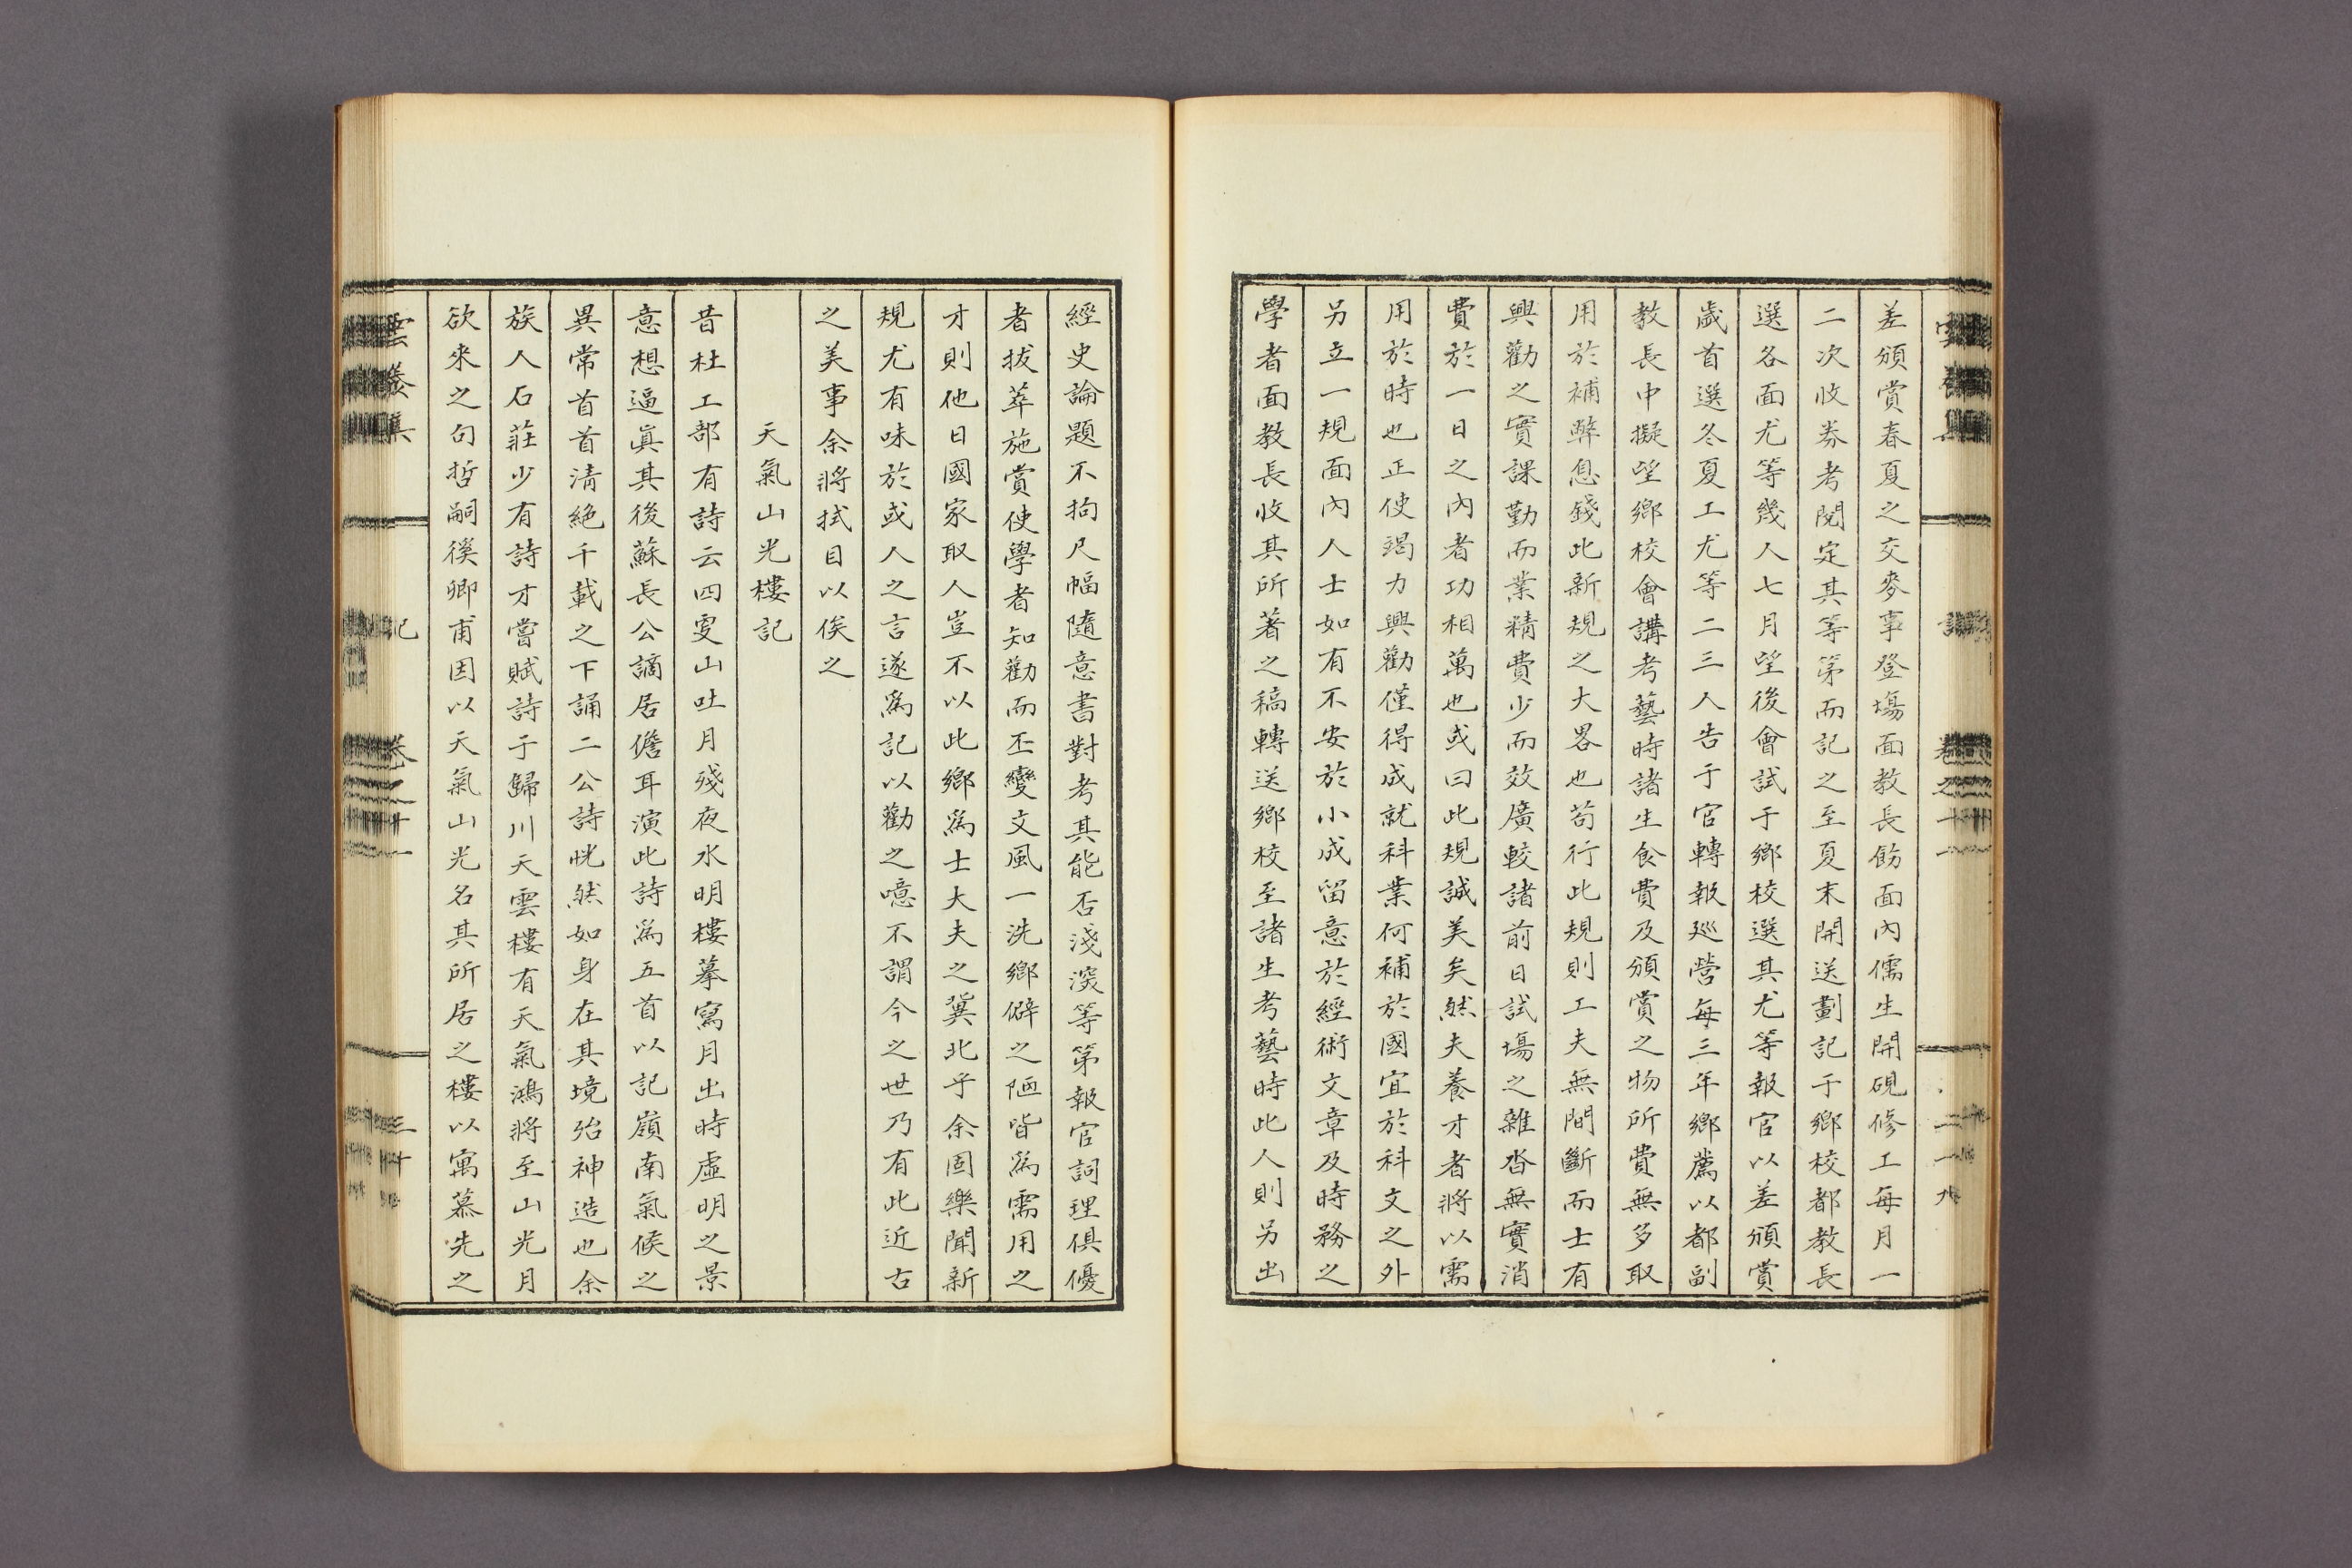 差頒賞春夏之交麥事登場面教長飭面內儒生開硯修工每月一
二次收券考閱定其等第而記之至夏末開送劃記于鄉校都教長
選各面尤等幾人七月望後會試于鄉校選其尤等報官以差頒賞
歲首選冬夏工尤等二三人告于官轉報廵營每三年鄉薦以都副
教長中擬望鄉校會講考藝時諸生食費及頒賞之物所費無多取
用於補弊息錢此新規之大畧也苟行此規則工夫無間斷而士有
興勸之實課勤而業精費少而效廣較諸前日試塲之雜沓無實消
費於一日之內者功相萬也或曰此規誠美矣然夫養才者將以需
用於時也正使竭力興勸僅得成就科業何補於國宜於科文之外
另立一規面內人士如有不安於小成留意於經術文章及時務之
學者面教長收其所著之稿轉送鄉校至諸生考藝時此人則另出
經史論題不拘尺幅隨意書對考其能否淺深等第報官詞理俱優
者拔萃施賞使學者知勸而丕變文風一洗鄉僻之陋皆爲需用之
才則他日國家取人豈不以此鄉爲士大夫之冀北乎余固樂聞新
規尤有味於或人之言遂爲記以勸之噫不謂今之世乃有此近古
之美事余將拭目以俟之
天氣山光樓記
昔杜工部有詩云四更山吐月殘夜水明樓摹寫月出時虛明之景
意想逼眞其後蘇長公謫居儋耳演此詩爲五首以記嶺南氣候之
異常首首淸絶千載之下誦二公詩恍然如身在其境殆神造也余
族人石莊少有詩才嘗賦詩于歸川天雲樓有天氣鴻將至山光月
欲來之句哲嗣徯卿甫因以天氣山光名其所居之樓以寓慕先之
雲養集　記　卷之十一　三十